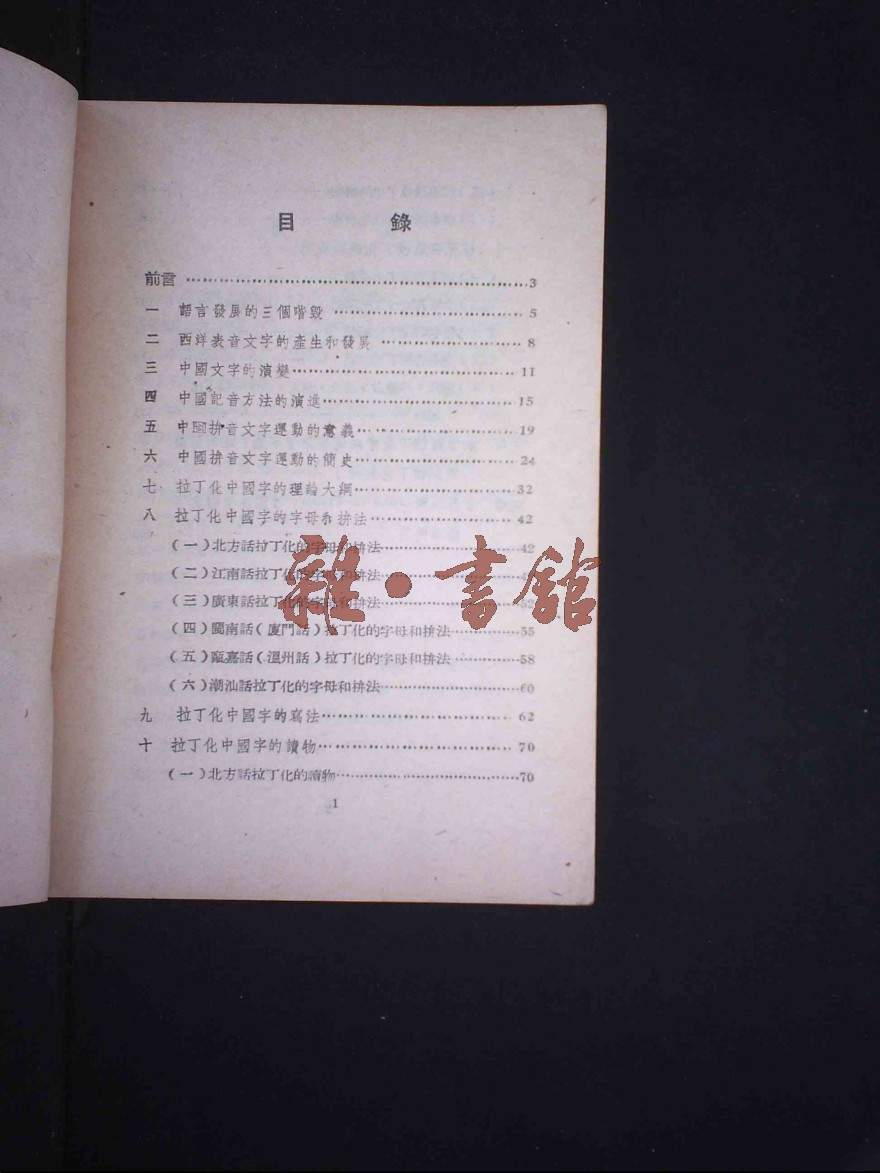 目 錄
前言…………………………………………3
一 語言發展的三個階段…………………………5
二 西洋表音文字的產生和發展…………………8
三 中國文字的演變………………………………11
四 中國記音方法的演進…………………………15
五 中國拼音文字運動的意義……………………19
六 中國拼音文字運動的簡史……………………24
七 拉丁化中國字的理論大綱……………………32
八 拉丁化中國字的字母和拼法…………………42
（一）北方話拉丁化的字母和拼法………………42
（二）江南話拉丁化的字母和拼法………………
（三）廣東話拉丁化的字母和拼法………………52
（四）閩南話（廈門話）拉丁化的字母和拼法………55
（五）甌嘉話（溫州話）拉丁化的字母和拼法………58
（六）潮汕話拉丁化的字母和拼法………………60
九 拉丁化中國字的寫法…………………………62
十 拉丁化中國字的讀物…………………………70
（一）北方話拉丁化的讀物………………………70
1
雜·書館